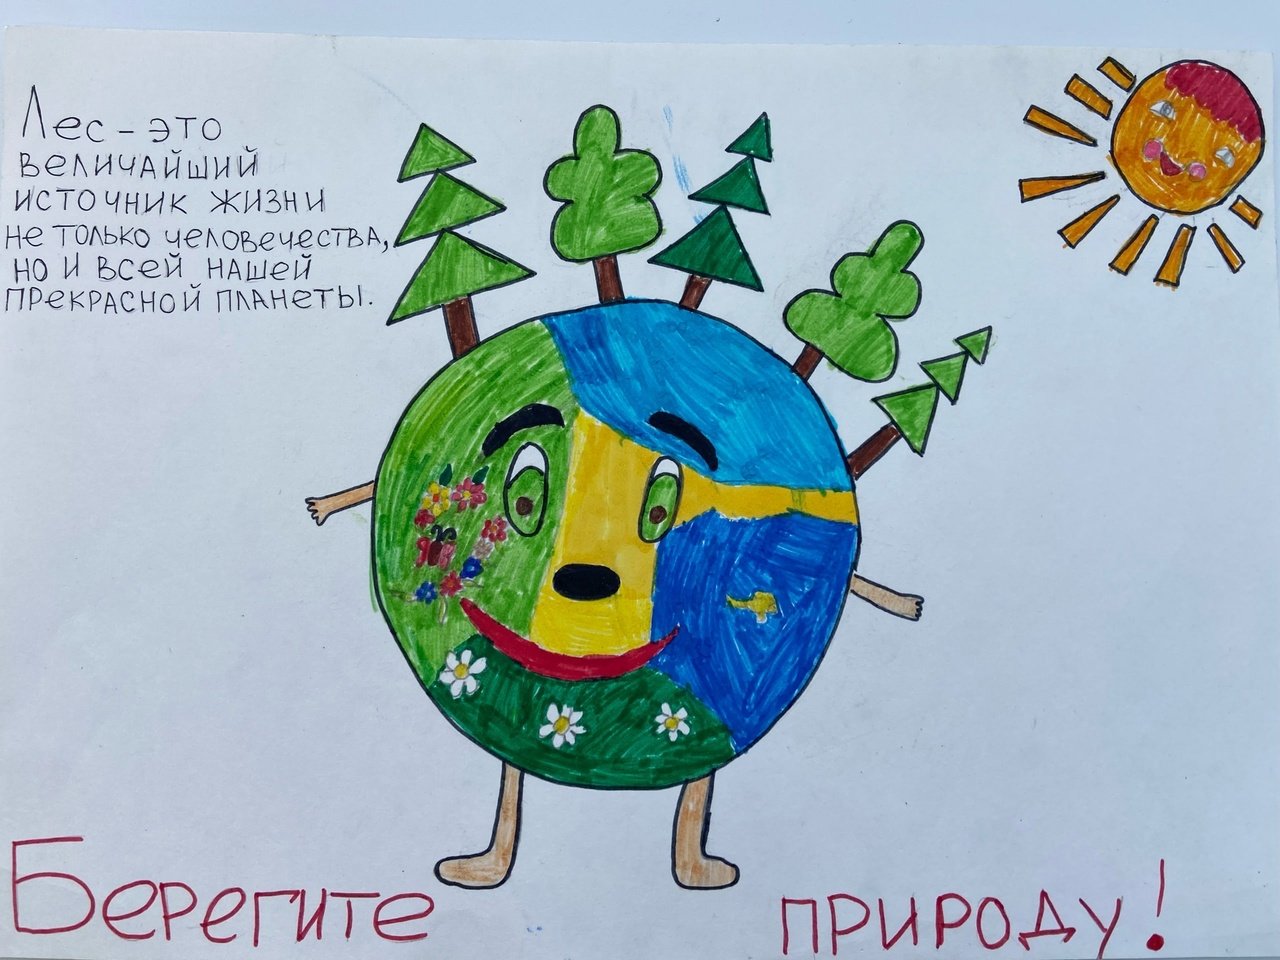 Лес – это
величайший
источник жизни
не только человечества,
но и всей нашей
прекрасной планеты.
Берегите природу!